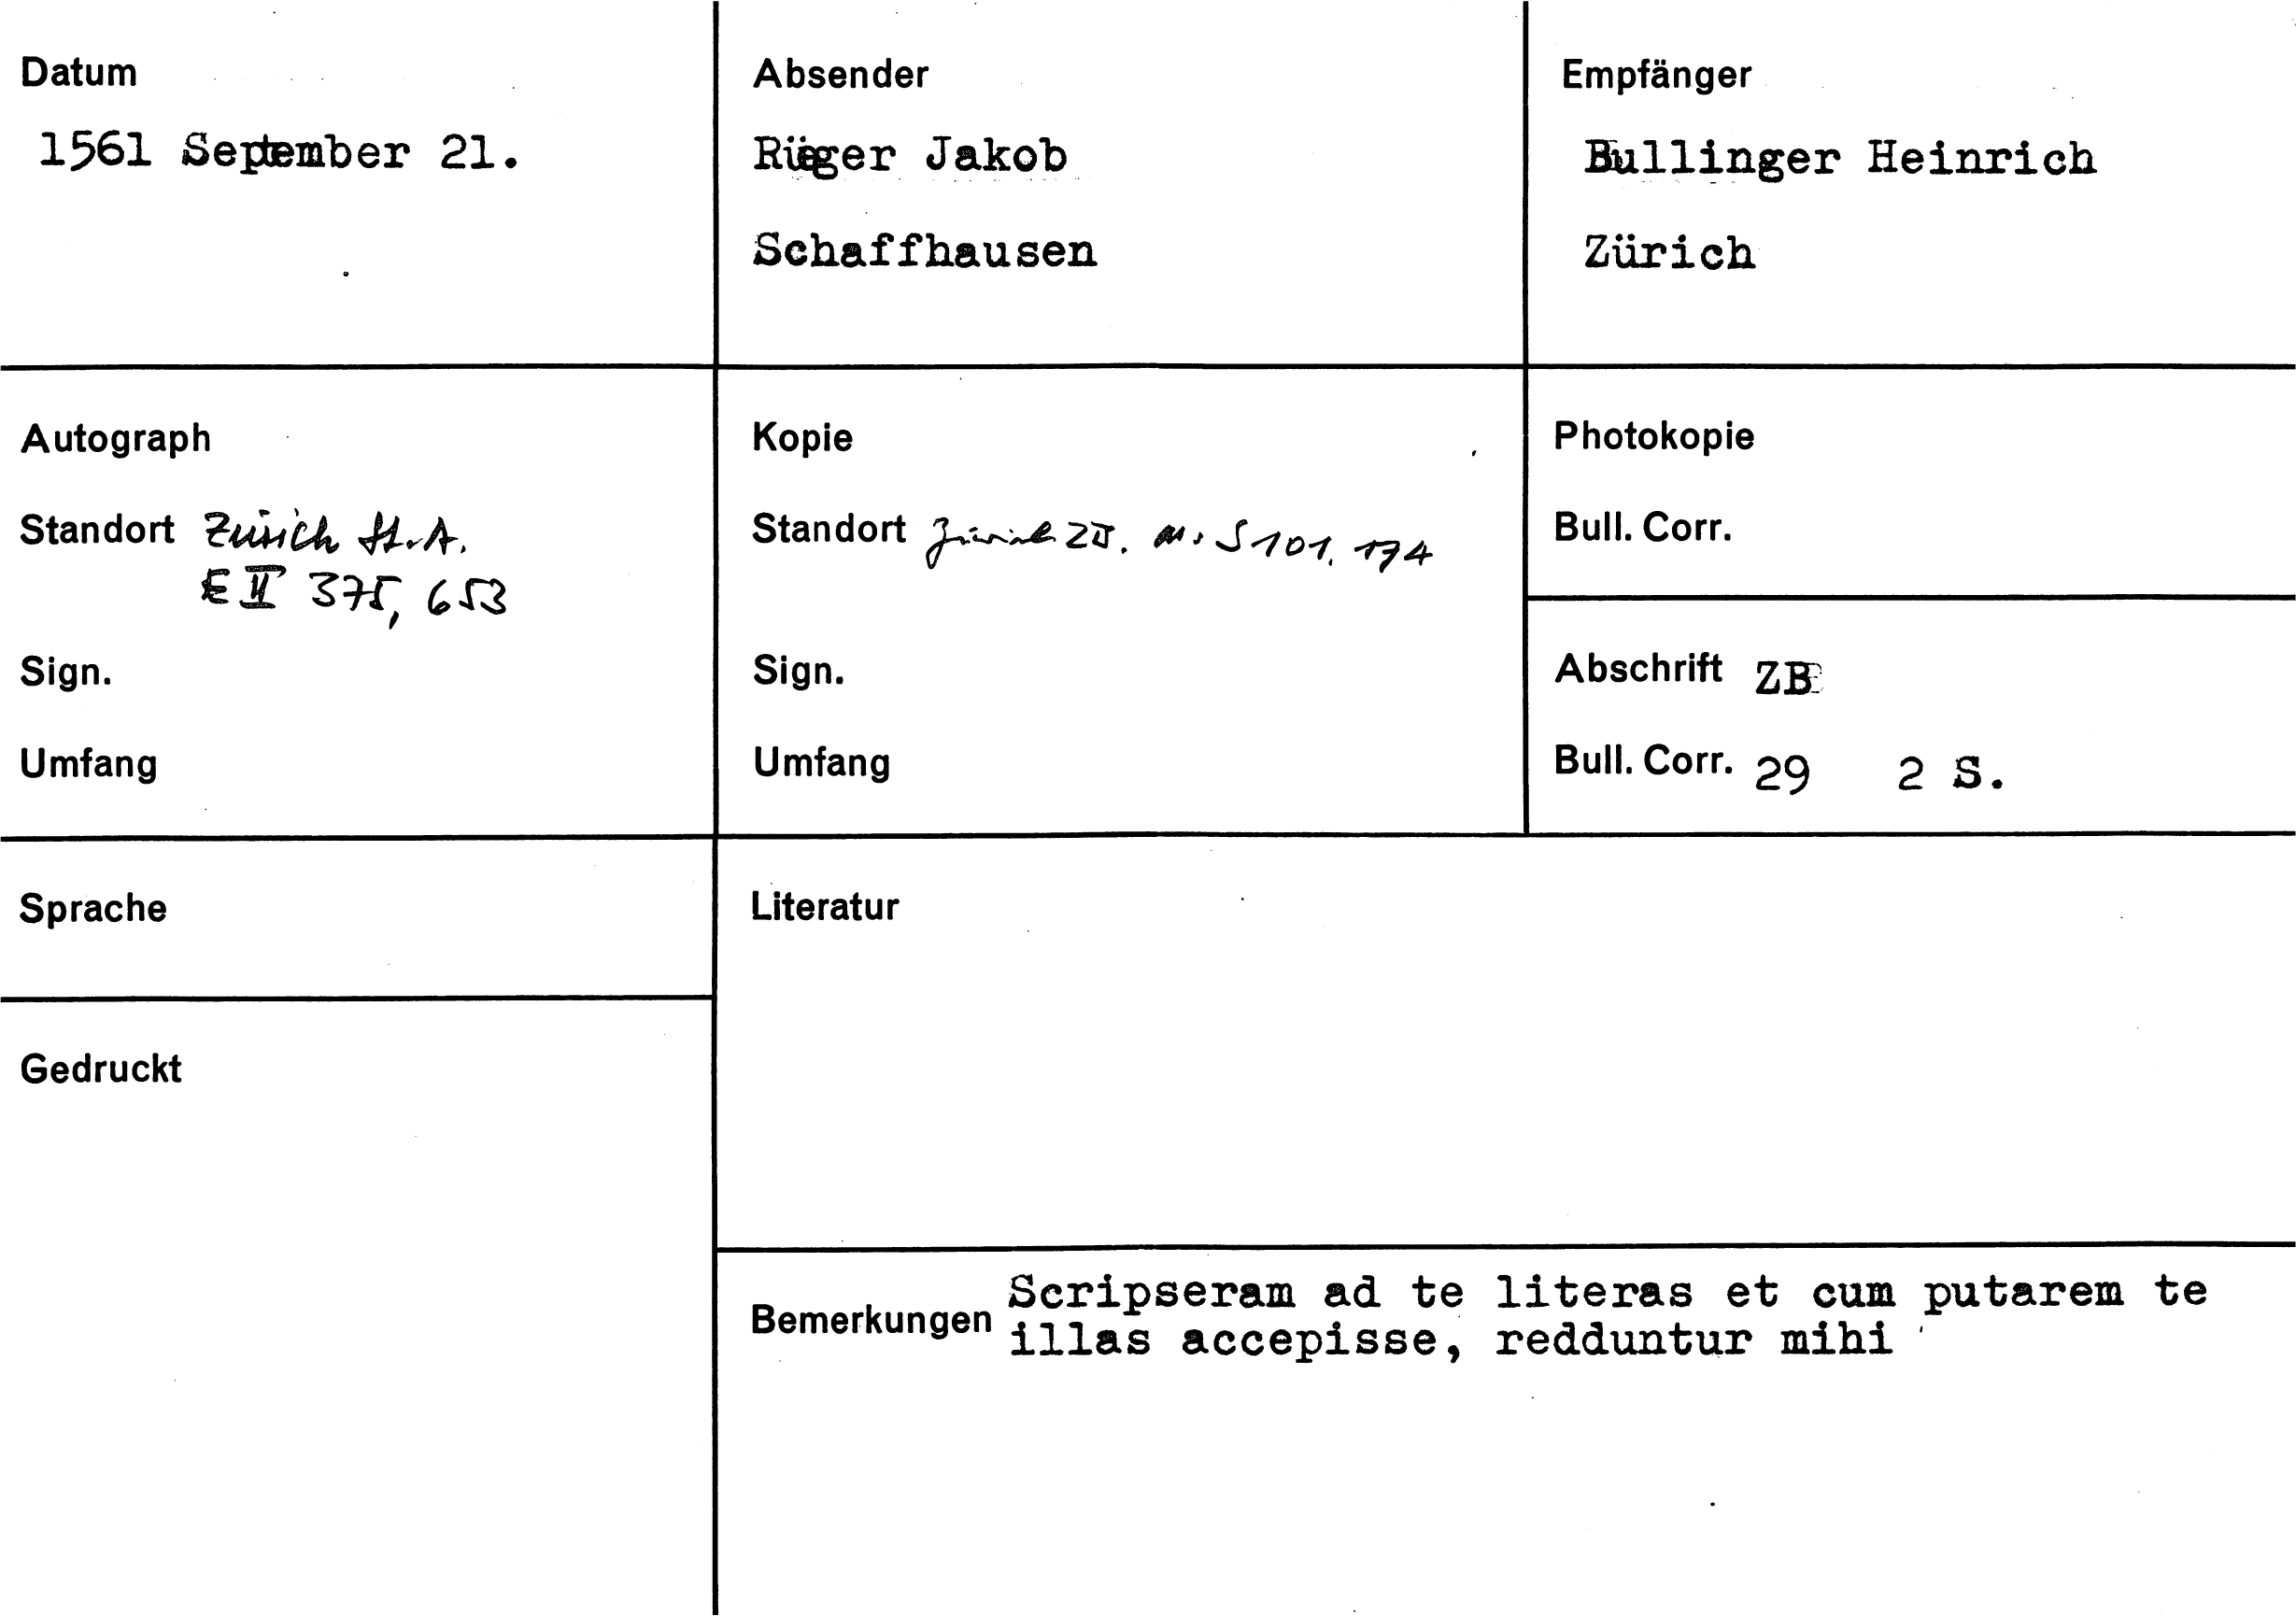 Datum
1561 September 21.
Absender
Rüeger Jakob
Schaffhausen
Empfänger
Bullinger Heinrich
Zürich
Autograph
Standort Zürich St.A.
E II 375, 653
Sign.
Umfang
Kopie
Standort Zürich ZB. Ms S 101, 174
Sign.
Umfang
Photokopie
Bull. Corr.
Abschrift ZB
Bull. Corr. 29 2 S.
Sprache
Gedruckt
Literatur
Bemerkungen Scripseram ad te literas et cum putarem te
illas accepisse, redduntur mihi